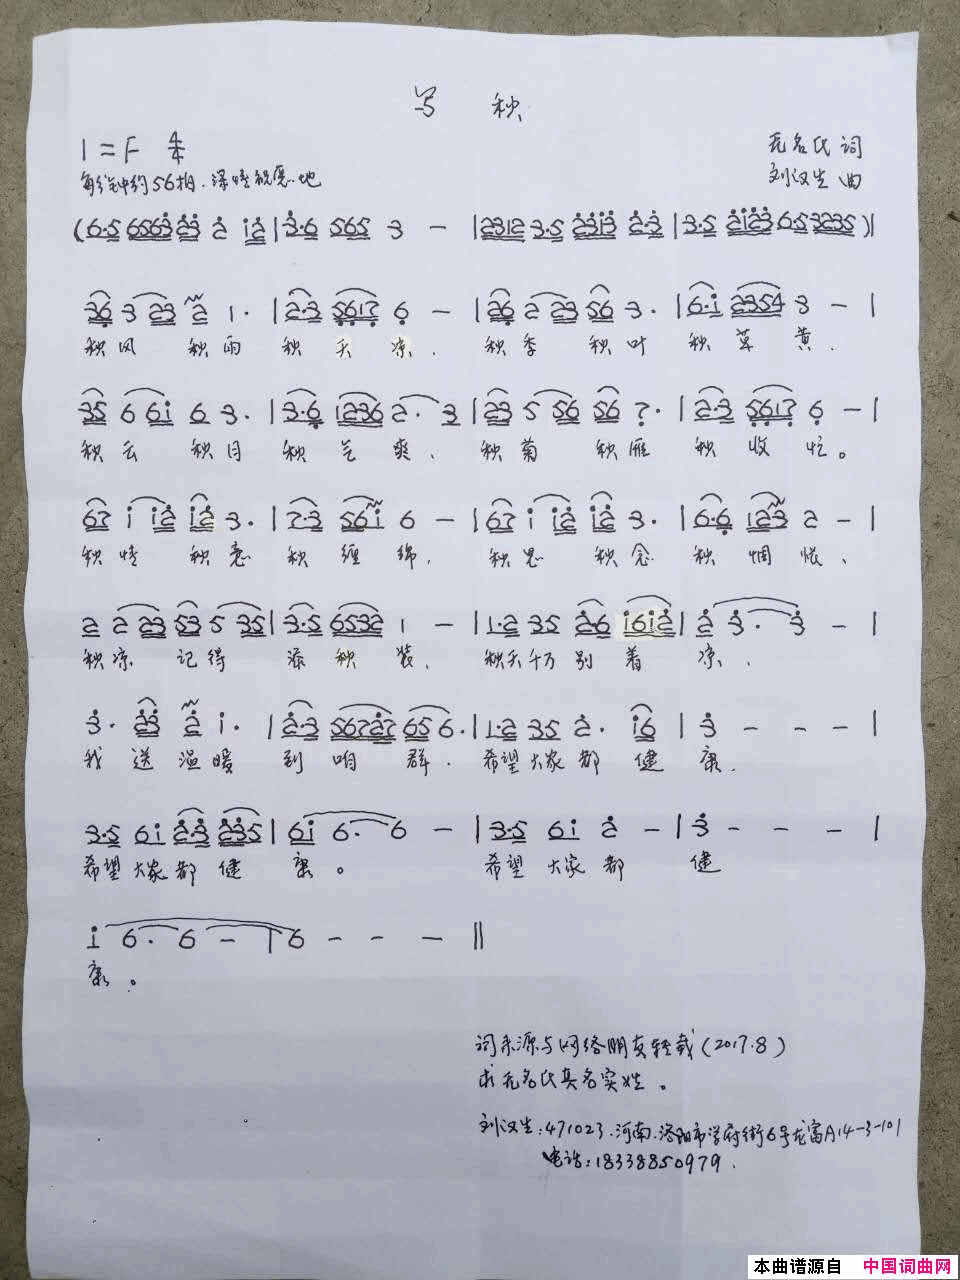 写 秋
1=F 4/4
无名氏 词
每分钟约56拍.深情祝愿地
刘汉生 曲
(6·5 6563 23 2 12|3·6 565 3 -|2312 3·5 2313 2·3|3·5 2123 6·5 3235)|
36 3 23 2 1·|2·3 5617 6 -|26 2 23 56 3·|6·1 2354 3 -|
秋风 秋雨 秋 天 凉. 秋季 秋叶 秋 草 黄.
35 6 61 6 3·|3·6 1236 2· 3|23 5 56 56 7·|2·3 5617 6 -|
秋云 秋月 秋 气 爽、 秋菊 秋雁 秋 收 忙。
67 1 12 12 3·|7·3 561 6 -|67 1 12 12 3·|6·6 123 2 -|
秋情 秋意 秋 缠 绵, 秋思 秋念 秋 惆 怅、
2 2 23 53 5 35|3·5 6532 1 -|1·2 35 26 1612|2 3· 3 -|
秋凉 记得 添 秋 装、 秋天千万 别 着 凉、
3· 23 2 1·|2·3 56727 65 6·|1·2 35 2· 16|3 - - -|
我 送 温暖 到 咱 群. 希望大家都 健 康.
3·5 61 2·3 235|61 6· 6 -|3·5 61 2 -|3 - - -|
希望大家都 健 康。 希望 大家都 健
1 6· 6 -|6 - - -||
康。
词来源与网络朋友转载(2017.8)
求无名氏真名实姓。
刘汉生:471023.河南.洛阳市学府街6号龙富A14-3-101
电话:18338850979.
本曲谱源自 中国词曲网